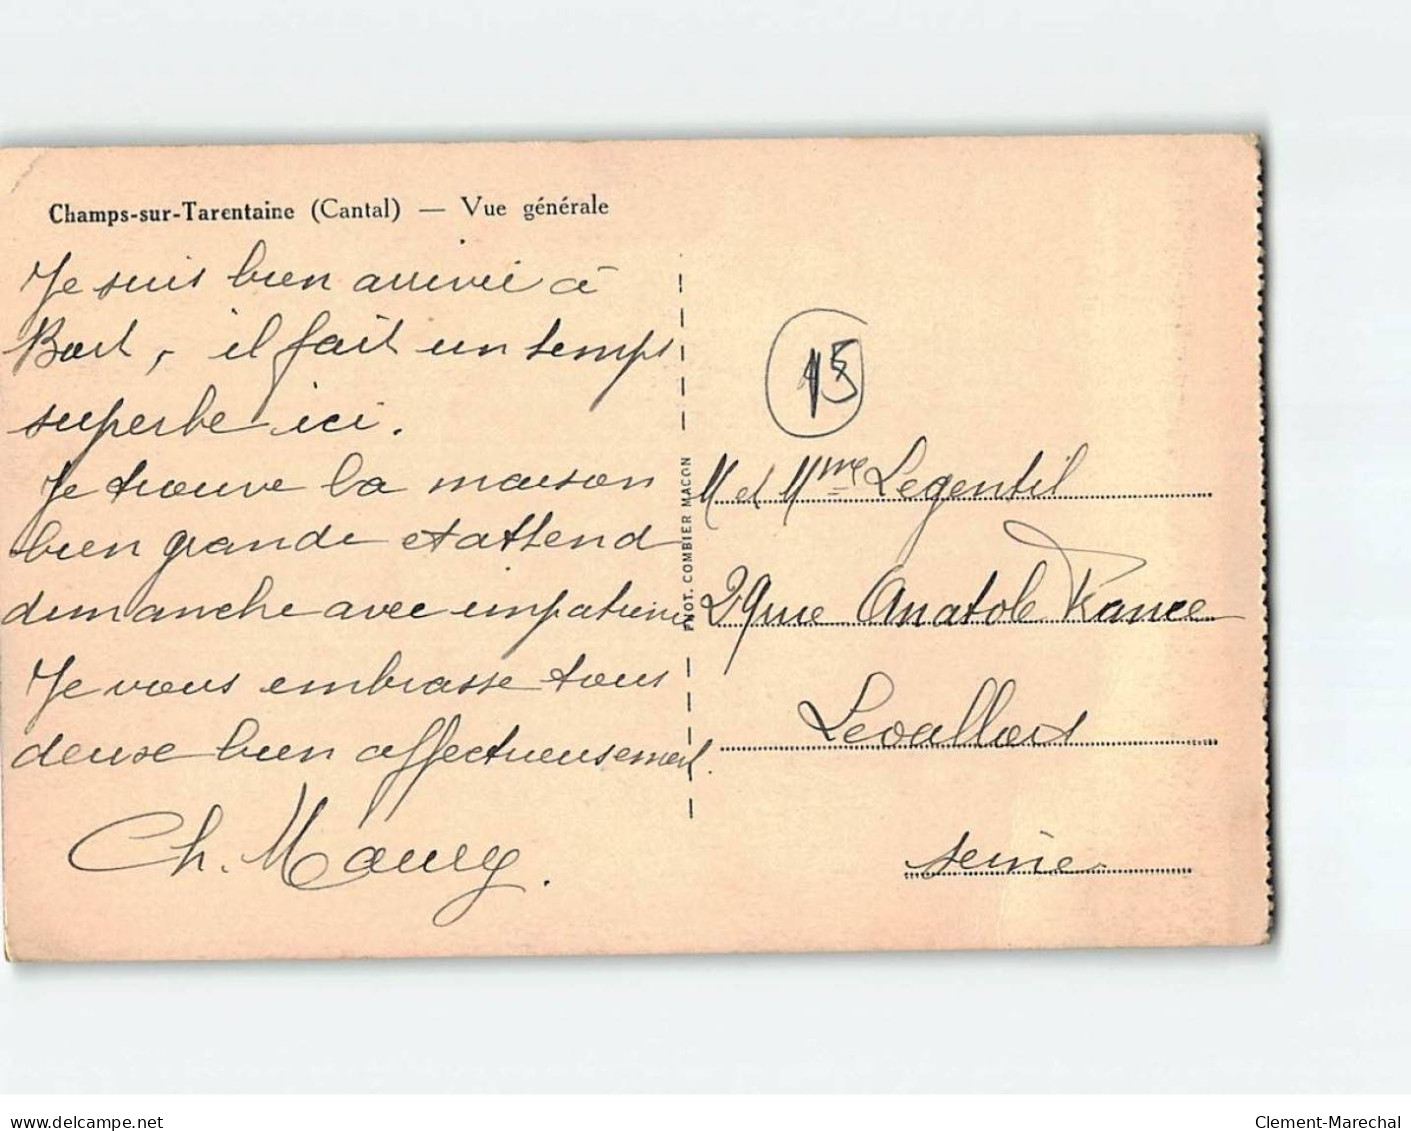 Champs-sur-Tarentaine (Cantal) — Vue générale
Je suis bien arrivée à
Bort, il fait un temps
superbe ici.
Je trouve la maison
bien grande et attend
dimanche avec impatience
Je vous embrasse tous
deux bien affectueusement.
Ch. Maury.
PHOT. COMBIER MACON
15
M et Mme Legentil
29 rue Anatole France
Levallois
Seine
delcampe.net
Clement-Marechal